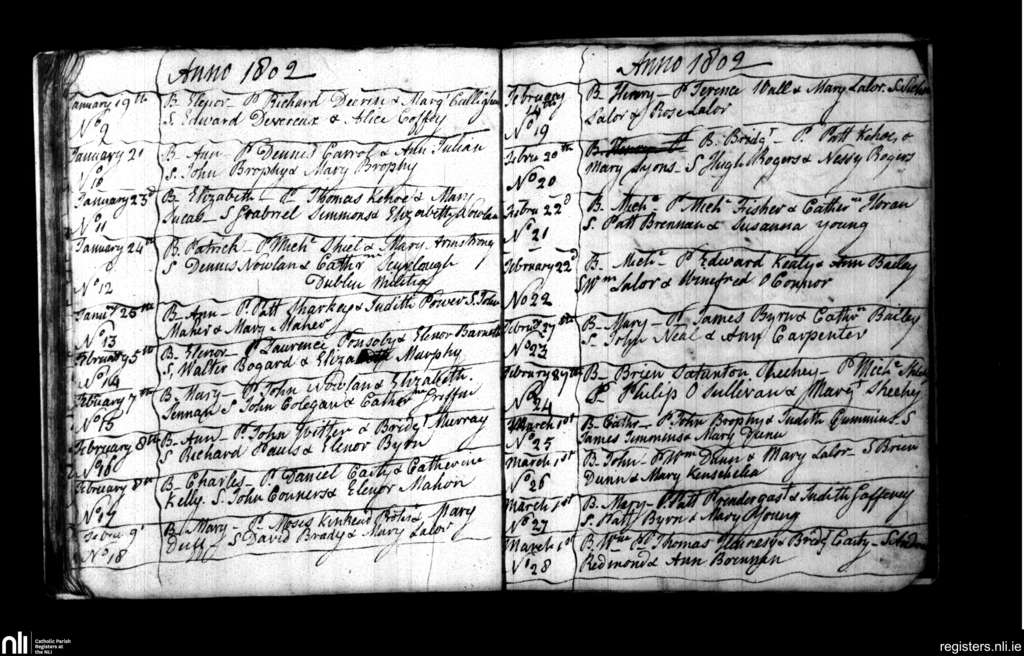 Anno 1802
January 19th B Elenor - P Richard Devrix & Margt Culligan
No 9 S Edward Devereux & Alice Coffey
January 21 B Ann - P. Dennis Carrol & Ann Julian
No 10 S. John Brophy & Mary Brophy
January 23d B Elizabeth - P Thomas Kehoe & Mary
No 11 - S Gabriel Simmons & Elizabeth Nowlan
January 24th B. Patrick - P Michl Shiel & Mary Armstrong
S Dennis Nowlan & Cathrne
No 12 Dublin Militia
25th B Ann - P. Patt Sharkey & Judith Power S. John
No 13 Maher & Mary Maher
February 5th B- Elenor - P Laurence Ponsoby & Elenor Barnett
No 14 S, Walter Bogard & Murphy
February 7th B Mary - P John Nowlan & Elizabeth
No 15 S John Colegan & Griffin
February 8th B Ann - P. John & Bridgt Murray
No 16 S Richard Pauls & Elenor Byrn
February 8th B- Charles - P. Daniel Caity & Catherine
No 17 Kelly. S. John Conners & Elenor Mahon
9 B- Mary - P. Moses & Mary
No 18 Duff S David Brady & Mary Lalor
Anno 1802
February B Henry - P Terence Wall & Mary Lalor. S
No 19 Lalor & Rose Lalor
20th B. Bridgt - P. Patt Kehoe, &
No 20 Mary Lyons - S Hugh Rogers & Nessy Rogers
22d B. Michl P Michl Fisher & Cathrne Horan
No 21 S. Patt Brennan & Susanna Young
February 22d B- Michl - P Edward Kealy & Ann Bailey
No 22 S Wm Lalor & Winefred O'Connor
27th B- Mary - P James Byrn & Cathrn Bailey
No 23 S. John Neal & Amy Carpenter
February B- Brien Sheehey - P. Michl
No 24 S. Philip O Sullivan & Margt Sheehy
March 1st B- Cathr - P John Brophy & Judith Cummins. S
No 25 James Timmins & Mary Dunn
March 1st B- John - P Wm Dunn & Mary Lalor - S Brien
No 26 Dunn & Mary Kenshelea
March 1st B- Mary - P. Patt Prendergast & Judith Gaffeney
No 27 S. Patt Byrn & Mary Young
March 1st B. Wm P. Thomas & Bridgt Caity -
No 28 Redmond & Ann Brennan
nli Catholic Parish
Registers at
the NLI
registers.nli.ie